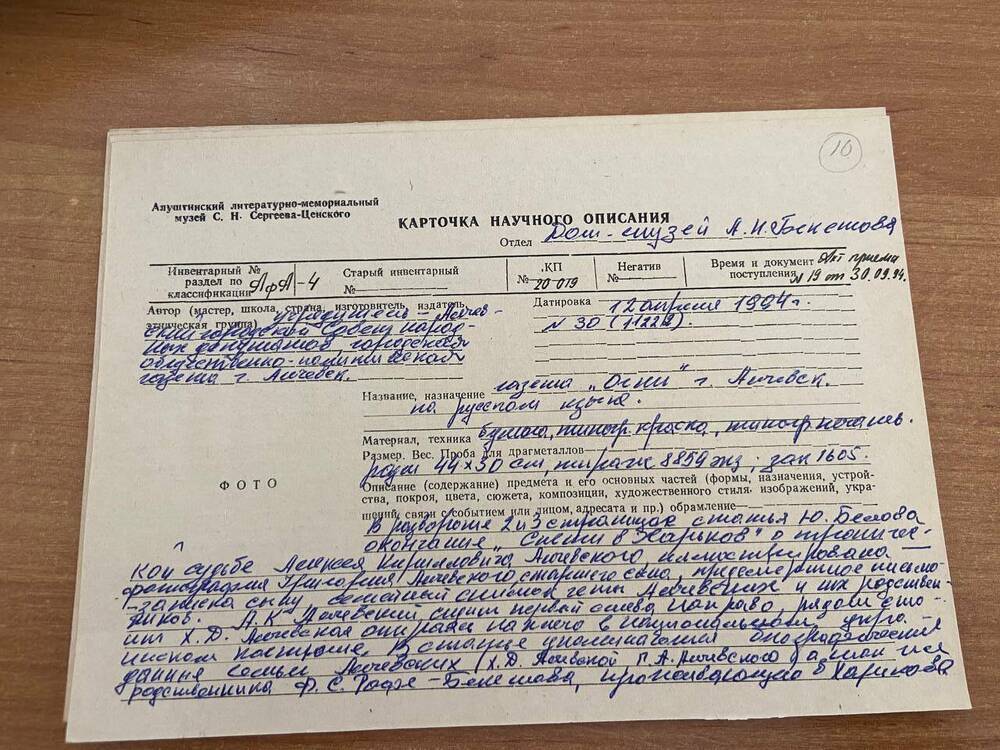 10
Алуштинский литературно-мемориальный
музей С. Н. Сергеева-Ценского
КАРТОЧКА НАУЧНОГО ОПИСАНИЯ
Отдел Дом-музей А.Н. Бекетова
Инвентарный №
раздел по
классификации АфА-4
Старый инвентарный
№
КП
№ 20 079
Негатив
№
Время и документ Акт приема
поступления № 19 от 30.09.94.
Автор (мастер, школа, страна, изготовитель, издатель,
этническая группа) учредитель - Алчев-
ский городской Совет народ-
ных депутатов городская
общественно-политическая
газета г. Алчевск.
Датировка 12 апреля 1994 г.
№ 30 (11224).
Название, назначение газета „Огни" г. Алчевск.
на русском языке.
Материал, техника бумага, типогр. краска, типогр. печать.
Размер. Вес. Проба для драгметаллов
разм 44 x 30 см, тираж 8859 экз; зак 1605.
ФОТО
Описание (содержание) предмета и его основных частей (формы, назначения, устрой-
ства, покроя, цвета, сюжета, композиции, художественного стиля, изображений, укра-
шений, связи с событием или лицом, адресата и пр.) обрамление
В развороте 2 и 3 страницах статья Ю. Белова
окончание „Спети в Харьков" о трагичес-
кой судьбе Алексея Кирилловича Алчевского иллюстрирована
фотографиями Григория Алчевского старшего сына, предсмертное письмо
-записка сыну, семейный снимок четы Алчевских и их родствен-
ников. А.К. Алчевский сидит первый слева направо, рядом сто-
ит Х.Д. Алчевская опираясь на плечо в национальном укра-
инском костюме. В статье упоминаются
данные семьи Алчевских (Х.Д. Алчевской, Г.А. Алчевского), а так же
родственника Ф.С. -Бекетова, проживающего в Харькове